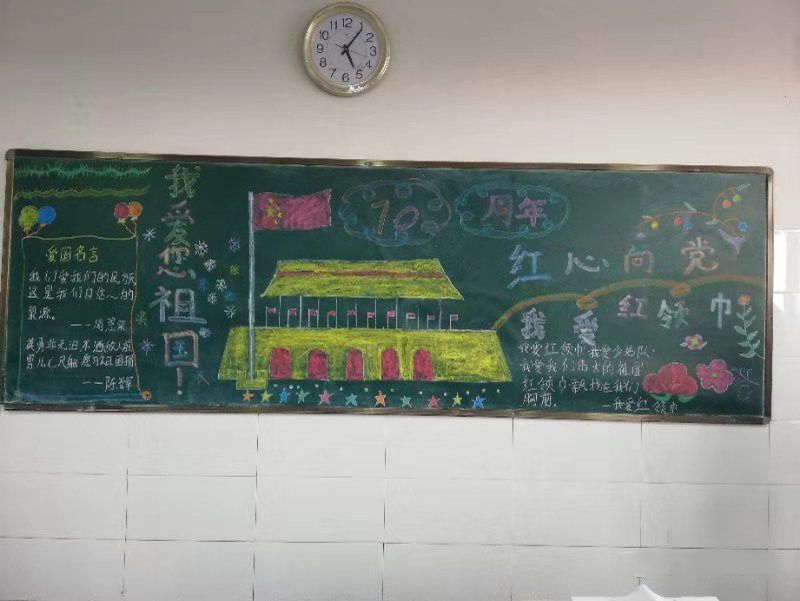 12
1
2
3
4
5
6
7
8
9
10
11
我爱您祖国！
爱国名言
我们爱我们的民族
这是我们自信心的
泉源。
——周恩来
英勇非无泪不洒敌人前
男儿七尺躯愿为祖国捐
——陈辉
70
周年
红心向党
我爱
红领巾
我爱红领巾我爱少先队：
我爱我们伟大的祖国
红领巾飘扬在我们
胸前。
—我爱红领巾